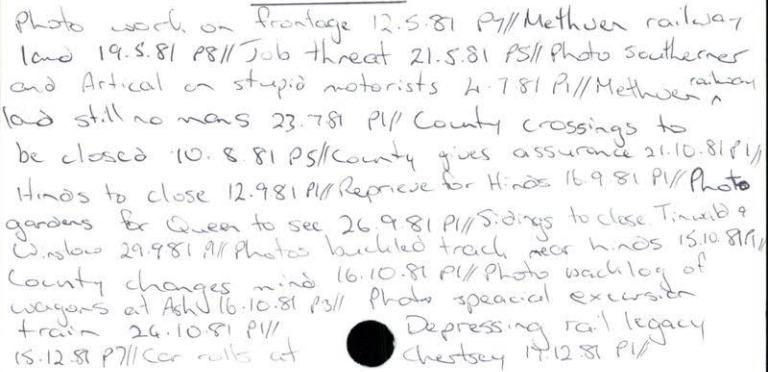 Photo work on frontage 12.5.81 P7// Methven railway
land 19.5.81 P8// Job threat 21.5.81 P5// Photo southerner
and Artical on stupid motorists 4.7.81 P1// Methven railway
land still no mans 23.7.81 P1// County crossings to
be closed 10.8.81 P5// County gives assurance 21.10.81 P1//
Hinds to close 12.9.81 P1// Reprieve for Hinds 16.9.81 P1// Photo
gardens for Queen to see 26.9.81 P1// Sidings to close Tinwald &
Winslow 29.9.81 P1// Photos buckled track near hinds 15.10.81 P1//
County changes mind 16.10.81 P1// Photo of
wagons at Ash 16.10.81 P3// Photo speacial excursion
train 24.10.81 P1// Depressing rail legacy
15.12.81 P7// Car rolls at Chertsey 17.12.81 P1//